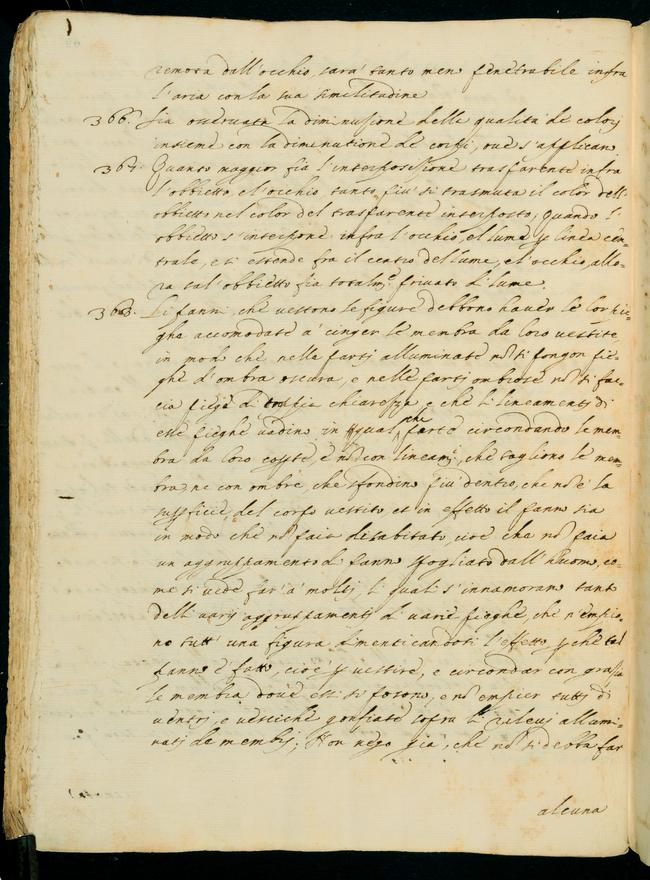 remota dall'occhio, sarà tanto men penetrabile infra
l'aria con la sua similitudine
366. Sia osservata la diminuzione delle qualità de colorj
insieme con la diminutione de corpi, ove s'applican
367. Quanto maggior fia l'interposizione trasparente infra
l'obbietto, e l'occhio tanto più si trasmuta il color dell'
obbietto nel color del trasparente interposto, quando l'
obbietto s'interpone infra l'occhio, e'l lume, p linea cen=
trale, e si estende fra il centro del lume, e l'occhio, allo=
ra tal'obbietto fia totalmte privato di lume.
368. Li panni, che vestono le figure debbono haver le lor pie=
ghe accomodate a' cinger le membra da loro vestite
in modo che, nelle partj alluminate nō si pongon pie=
ghe d'ombra oscura, e nelle partj ombrose nō si fac=
cia pieghe di troppa chiarezza, e che li lineamentj di
esse pieghe vadino in qual che parte circondando le mem=
bra da loro coperte, e nō con lineamti, che taglino le mem=
bra, ne con ombre, che sfondino più dentro, che nō è la
superficie del corpo vestito et in effetto il panno sia
in modo che nō paia disabitato, cioè che nō paia
un aggruppamento di panno spogliato dall'huomo, co=
me si vede far'a' moltj li quali s'innamorano tanto
delli varij aggruppamentj di varie pieghe, che n'empio=
no tutt'una figura dimenticandosi l'effetto, p che tal
panno è fatto, cioè, p vestire, e circondar con grazia
le membra dove essi si posono, e nō empier tuttj di
ventrj, e vesciche gonfiate sopra li rilievj allumi=
natj de membrj; Non nego già, che nō si debba far
alcuna